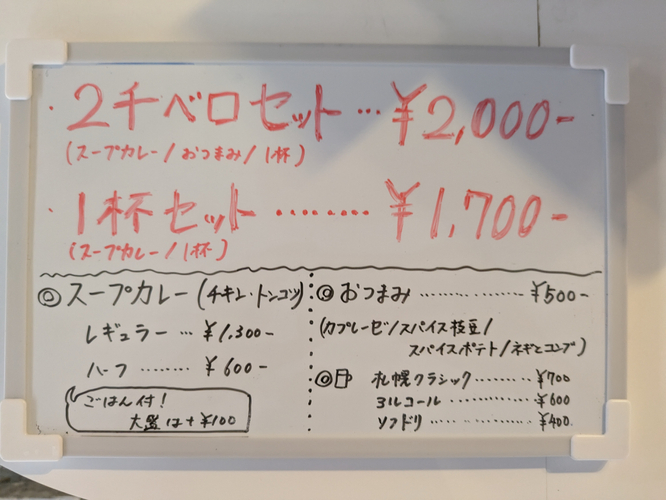 ・2千ベロセット…¥2,000-
(スープカレー/おつまみ/1杯)
・1杯セット………¥1,700-
(スープカレー/1杯)
◎スープカレー(チキン・トンコツ)
レギュラー…¥1,300-
ハーフ………¥600-
ごはん付!
大盛は+¥100
◎おつまみ…………¥500-
(カプレーゼ/スパイス枝豆/
スパイスポテト/ネギとコンブ)
◎札幌クラシック………¥700
ヨルコール…………¥600
ソフドリ……………¥400